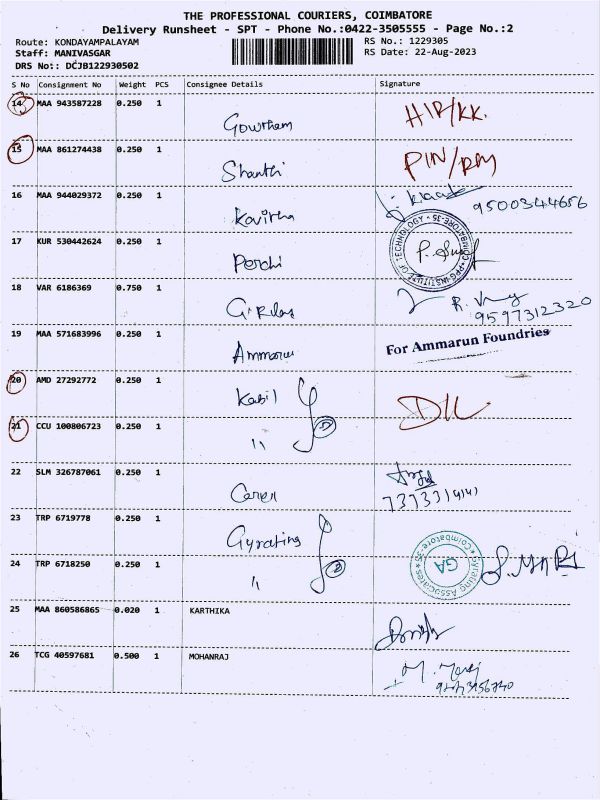 THE PROFESSIONAL COURIERS, COIMBATORE
Delivery Runsheet - SPT - Phone No.:0422-3505555 - Page No.:2
Route: KONDAYAMPALAYAM RS No.: 1229305
Staff: MANIVASGAR RS Date: 22-Aug-2023
DRS No:: DCJB122930502
S No Consignment No Weight PCS Consignee Details Signature
14 MAA 943587228 0.250 1 Gowtham
15 MAA 861274438 0.250 1 Shanthi PIN/RM
16 MAA 944029372 0.250 1 Kavitha 9500344656
17 KUR 530442624 0.250 1 PPG INSTITUTE OF TECHNOLOGY COIMBATORE-35
18 VAR 6186369 0.750 1 9597312320
19 MAA 571683996 0.250 1 Ammarun For Ammarun Foundries
20 AMD 27292772 0.250 1 Kabil
21 CCU 100806723 0.250 1 "
22 SLM 326787061 0.250 1
23 TRP 6719778 0.250 1 Gyrating Gyrating Associates Coimbatore-35 GA
24 TRP 6718250 0.250 1 " S. MARI
25 MAA 860586865 0.020 1 KARTHIKA
26 TCG 40597681 0.500 1 MOHANRAJ